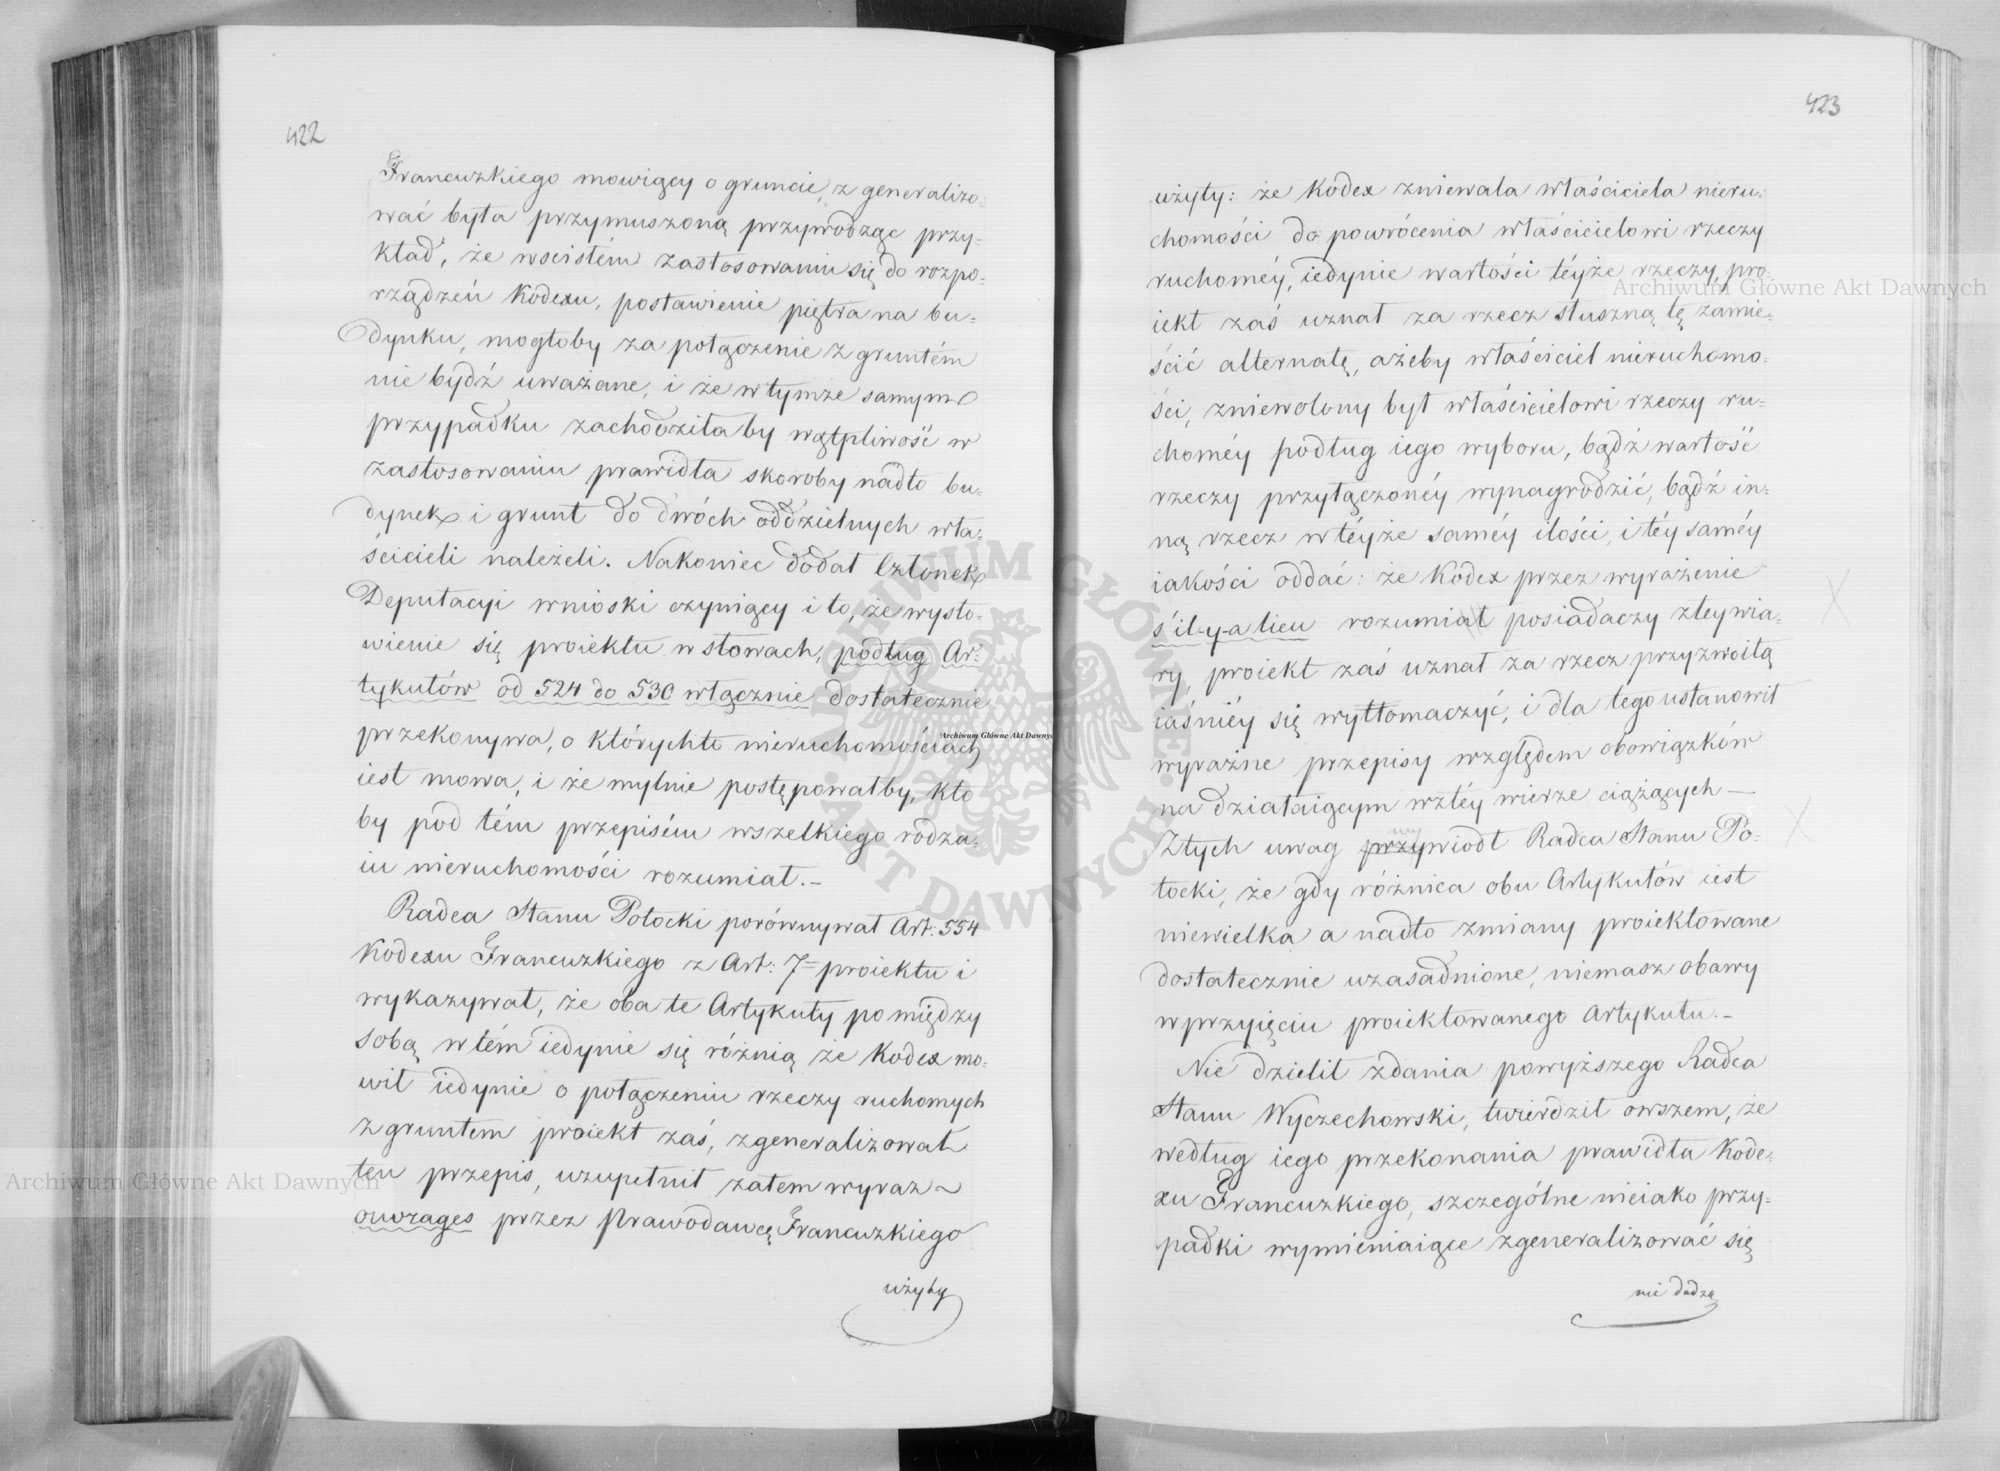 422
Francuzkiego mowiący o gruncie, z generalizo-
wać była przymuszoną przywodząc przy-
kład, że wscistém zastosowaniu się do rozpo-
rządzeń Kodexu, postawienie piętra na bu-
dynku, mogłoby za połączenie z gruntém
nie bydź uważane, i że w tymże samym
przypadku zachodziłaby wątpliwość w
zastosowaniu prawidła skoroby nadto bu-
dynek i grunt do dwóch oddzielnych wła-
ścicieli należeli. Nakoniec dodał Członek
Deputacyi wnioski czyniący i to, że wysło-
wienie się proiektu w słowach, podług Ar-
tykułów od 524 do 530 włącznie dostatecznie
przekonywa, o którychto nieruchomościach
iest mowa, i że mylnie postępowałby, kto
by pod tém przepisém wszelkiego rodza-
iu nieruchomości rozumiał.-
Radca Stanu Potocki porównywał Art: 554
Kodexu Francuzkiego z Art: 7= proiektu i
wykazywał, że oba te Artykuły pomiędzy
sobą w tém iedynie się różnią że Kodex mo-
wił iedynie o połączeniu rzeczy ruchomych
z gruntem proiekt zaś, zgeneralizował
ten przepis, uzupełnił zatem wyraz
ouvrages przez Prawodawcę Francuzkiego
użyty
423
użyty: że Kodex zniewala właściciela nieru-
chomości do powrócenia właścicielowi rzeczy
ruchoméy, iedynie wartości téyże rzeczy, pro-
iekt zaś uznał za rzecz słuszną tę zamie-
ścić alternatę, ażeby właściciel nieruchomo-
ści, zniewolony był właścicielowi rzeczy ru-
choméy podług iego wyboru, bądź wartość
rzeczy przyłączonéy wynagrodzić, bądź in-
ną rzecz w téyże saméy ilości, i téy saméy
iakości oddać: że Kodex przez wyrażenie
s'il-y-a lieu rozumiał posiadaczy złey wia-
ry, proiekt zaś uznał za rzecz przyzwoitą
iaśniéy się wytłomaczyć, i dla tego ustanowił
wyraźne przepisy względem obowiązków
na działaiącym w złéy wierze ciążących —
Ztych uwag przywiodł Radca Stanu Po-
tocki, że gdy różnica obu Artykułów iest
niewielka a nadto zmiany proiektowane
dostatecznie uzasadnione, niemasz obawy
w przyięciu proiektowanego Artykułu.-
Nie dzielił zdania powyższego Radca
Stanu Wyczechowski, twierdził owszem, że
według iego przekonania prawidła Kode-
xu Francuzkiego, szczególne nieiako przy-
padki wymieniaiące zgeneralizować się
nie dadzą
Archiwum Główne Akt Dawnych
Archiwum Główne Akt Dawnych
Archiwum Główne Akt Dawnych
ARCHIWUM GŁÓWNE AKT DAWNYCH